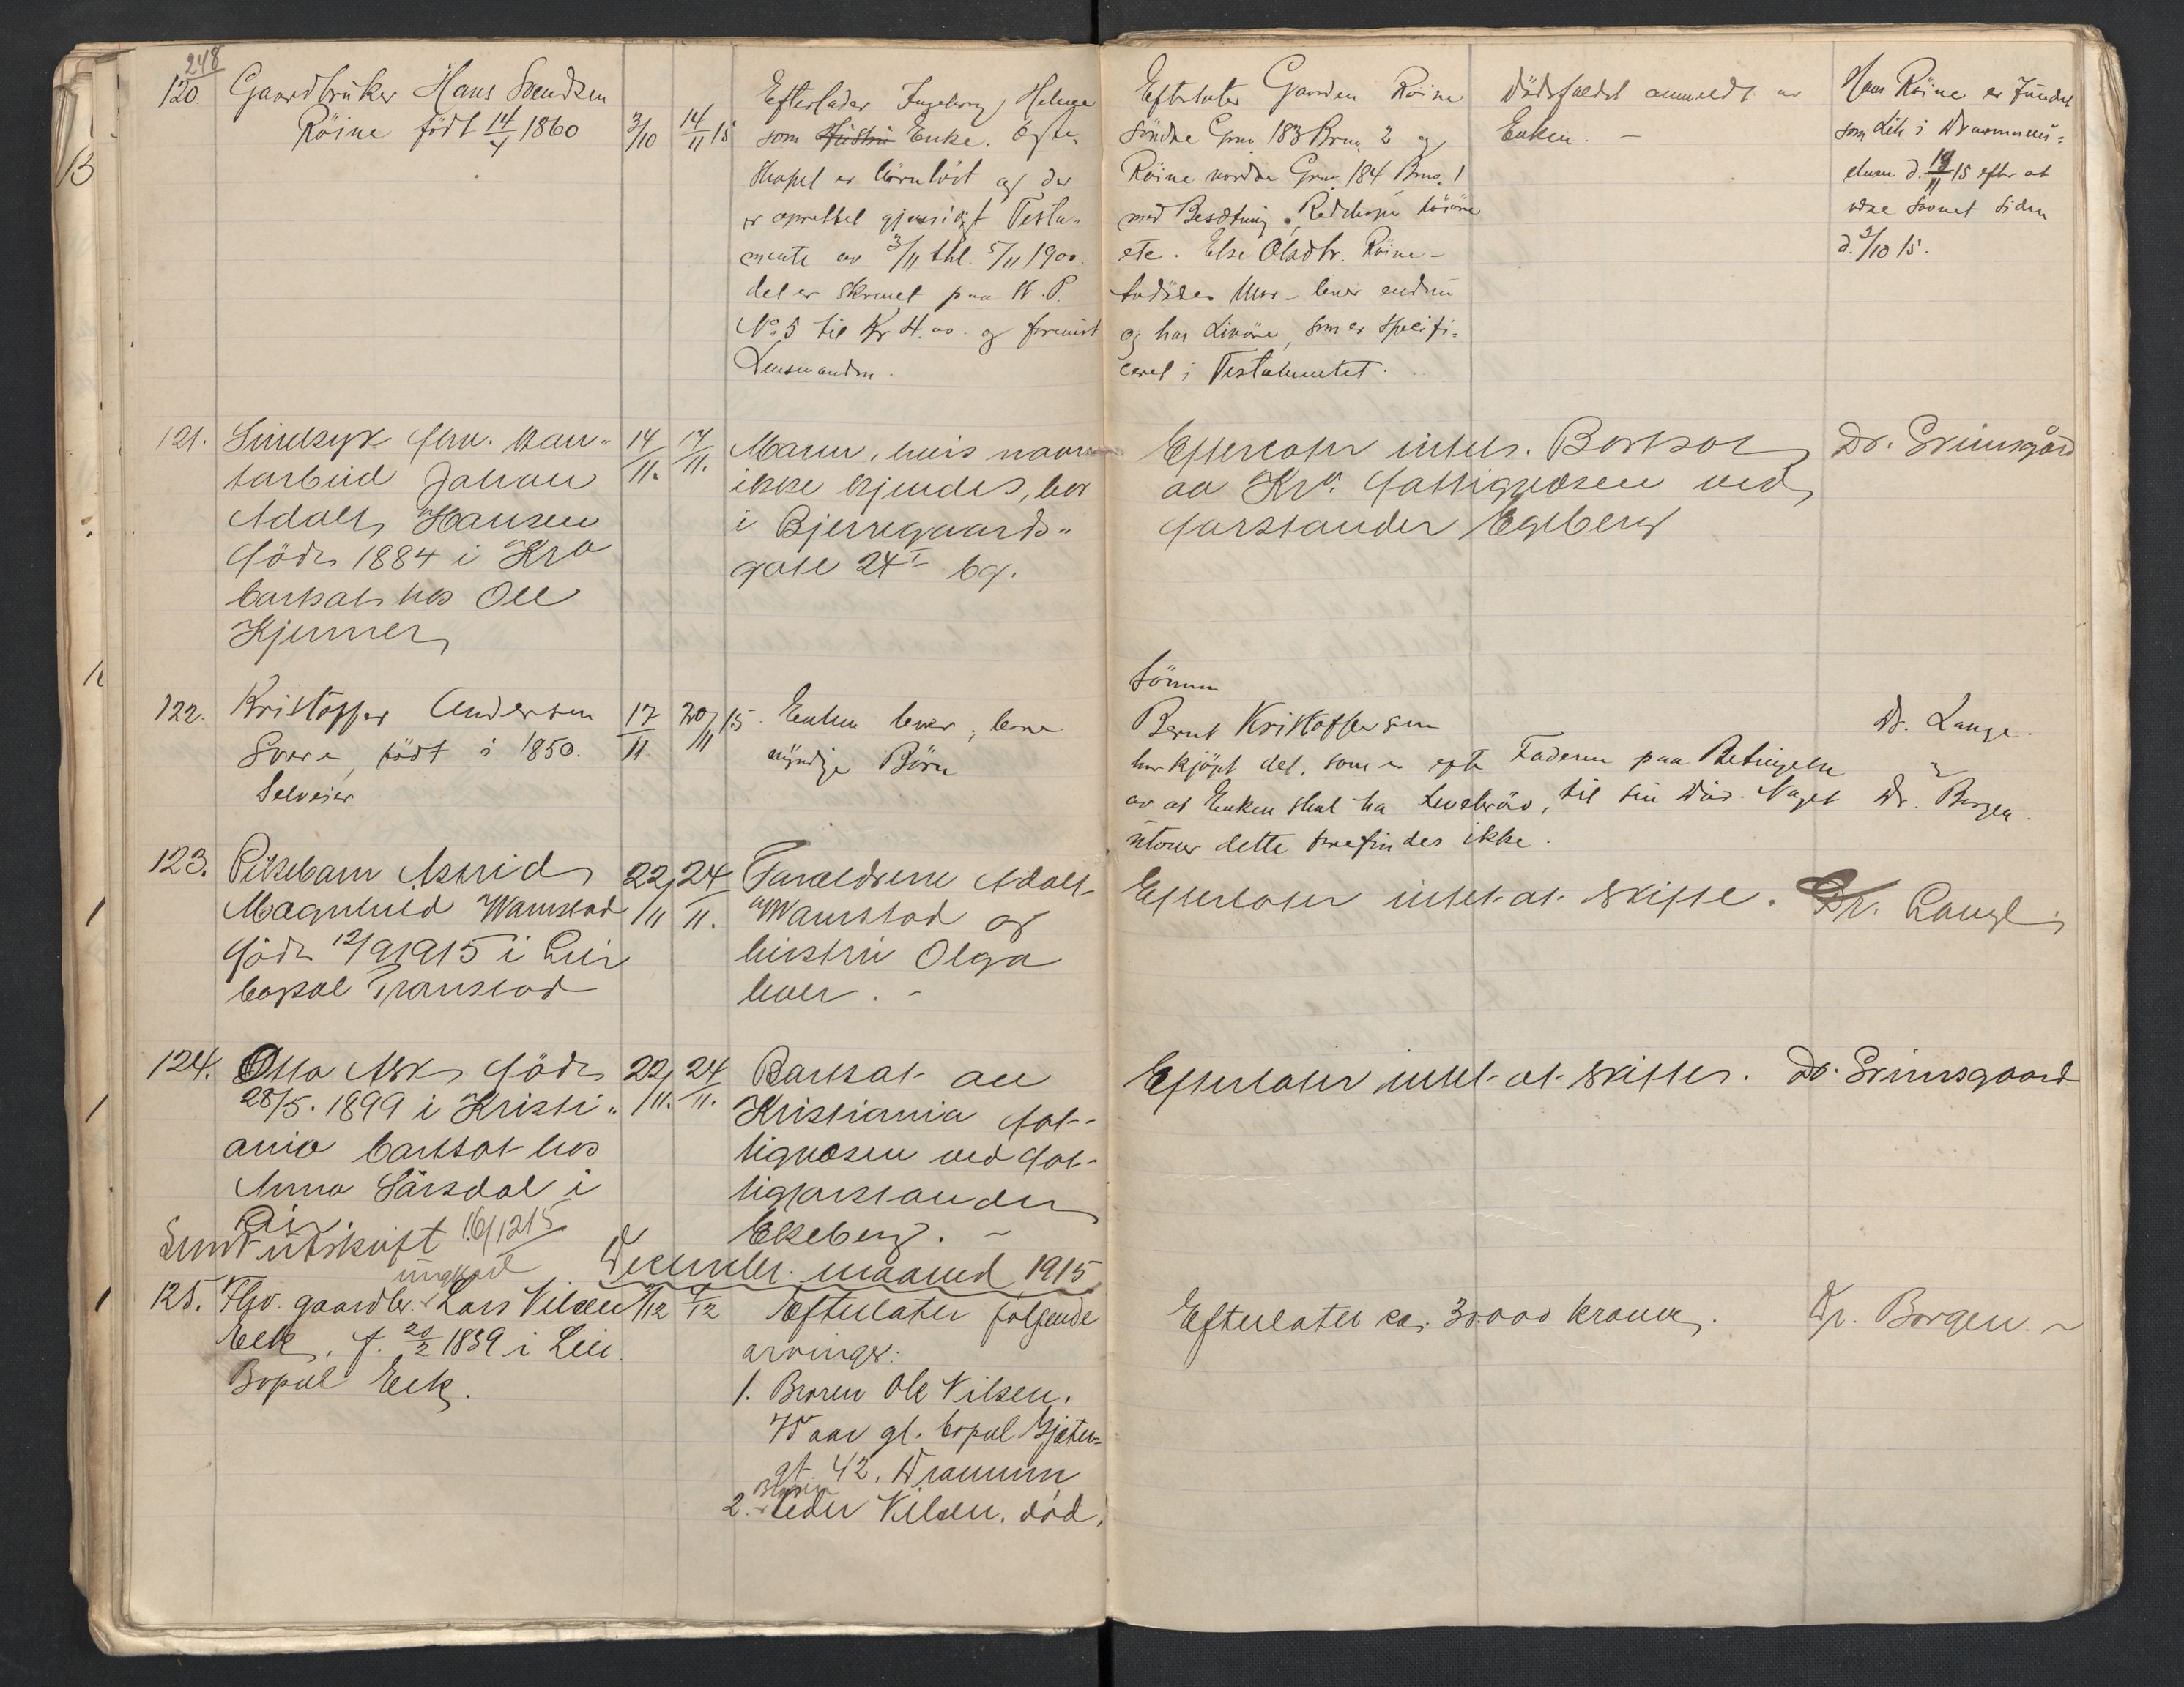 248
120. Gaardbruker Hans Svendsen
Röine födt 14/4 1860
3/10
14/11 15
Efterlader Ingeborg Helene
som Hustru Enke. Egte-
skapet er barnlöst og der
er oprettet gjensidigt Testa-
mente av 3/11 thl. 5/11 1900.
det er skrevet paa
No 5 til Kr 4.00 og forevist
Lensmanden.
Efterlater Gaarden Röine
Söndre Gno 183 Bruno 2 og
Röine nordre Gno. 184 Bno. 1
med Besætning, Redskaper
etc. Else Olsdtr. Röine -
Mor - lever endnu
og har Livöre, som er specifi-
ceret i Testamentet.
Dödsfaldet anmeldt av
Enken. -
Hans Röine er fundet
som Lik i Drammens-
elven d. 11 15 efter at
være savnet siden
d. 3/10 15.
121. Sindssyk
Johan
Adolf Hansen
född 1884 i Kra
bortsat hos Ole
Kjenner
14/11.
17/11.
Moren, hvis navn
ikke kjendes, bor
i Bjerregaards-
gate 24 I bg.
Efterlater intet. Bortsat
av Kra. fattigvæsen ved
forstander Egeberg
Dr. Grimsgård
122. Kristoffer Andersen
födt i 1850.
Selveier
17/11
20/11 15.
Enken lever,
myndige Börn
Sönnen
Bernt Kristoffersen
har kjöpt det, som er efter Faderen paa Betingelse
av at Enken skal ha Levebröd, til sin Död. Noget
utover dette forefindes ikke.
Dr. Lange.
Dr. Borgen.
123. Pikebarn Astrid
Magnhild Wamstad
född 12/9 1915 i Lier
bopæl Transtad
22/11
24/11.
Foreldrene Adolf
Wamstad og
hustru Olga
lever. -
Efterlater intet at skifte.
Dr. Lange
124. Otto Ask född
28/5. 1899 i Kristi-
ania bortsat hos
Anna Sörsdal i
Lier.
22/11.
24/11.
Bortsat av
Kristiania fat-
tigvæsen ved fat-
tigforstander
Ekeberg. -
Efterlater intet at skiftes.
Dr. Grimsgaard
Sendt utskrift 16/12 15
December maaned 1915
ungkarl
125. Fhv. gaardbr. Lars Nilsen
Eek, f. 20/2 1839 i Lier.
Bopæl Eek.
/12
/12
Efterlater følgende
arvinger:
1. Broren Ole Nilsen.
75 aar gl. bopæl
gt. 42, Drammen
Broren
2. Peder Nilsen. død.
Efterlater ca. 30.000 kroner.
Dr. Borgen. ~